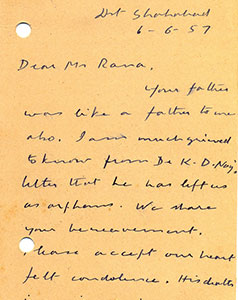 Dst Shahabad
6-6-57
Dear Mr Rana.
Your father
was like a father to me
also. I am much grieved
to know from De K. D. Nag's
letter that he has left us
as orphans. We share
your bereavement.
Please accept our heart
felt condolence. His death